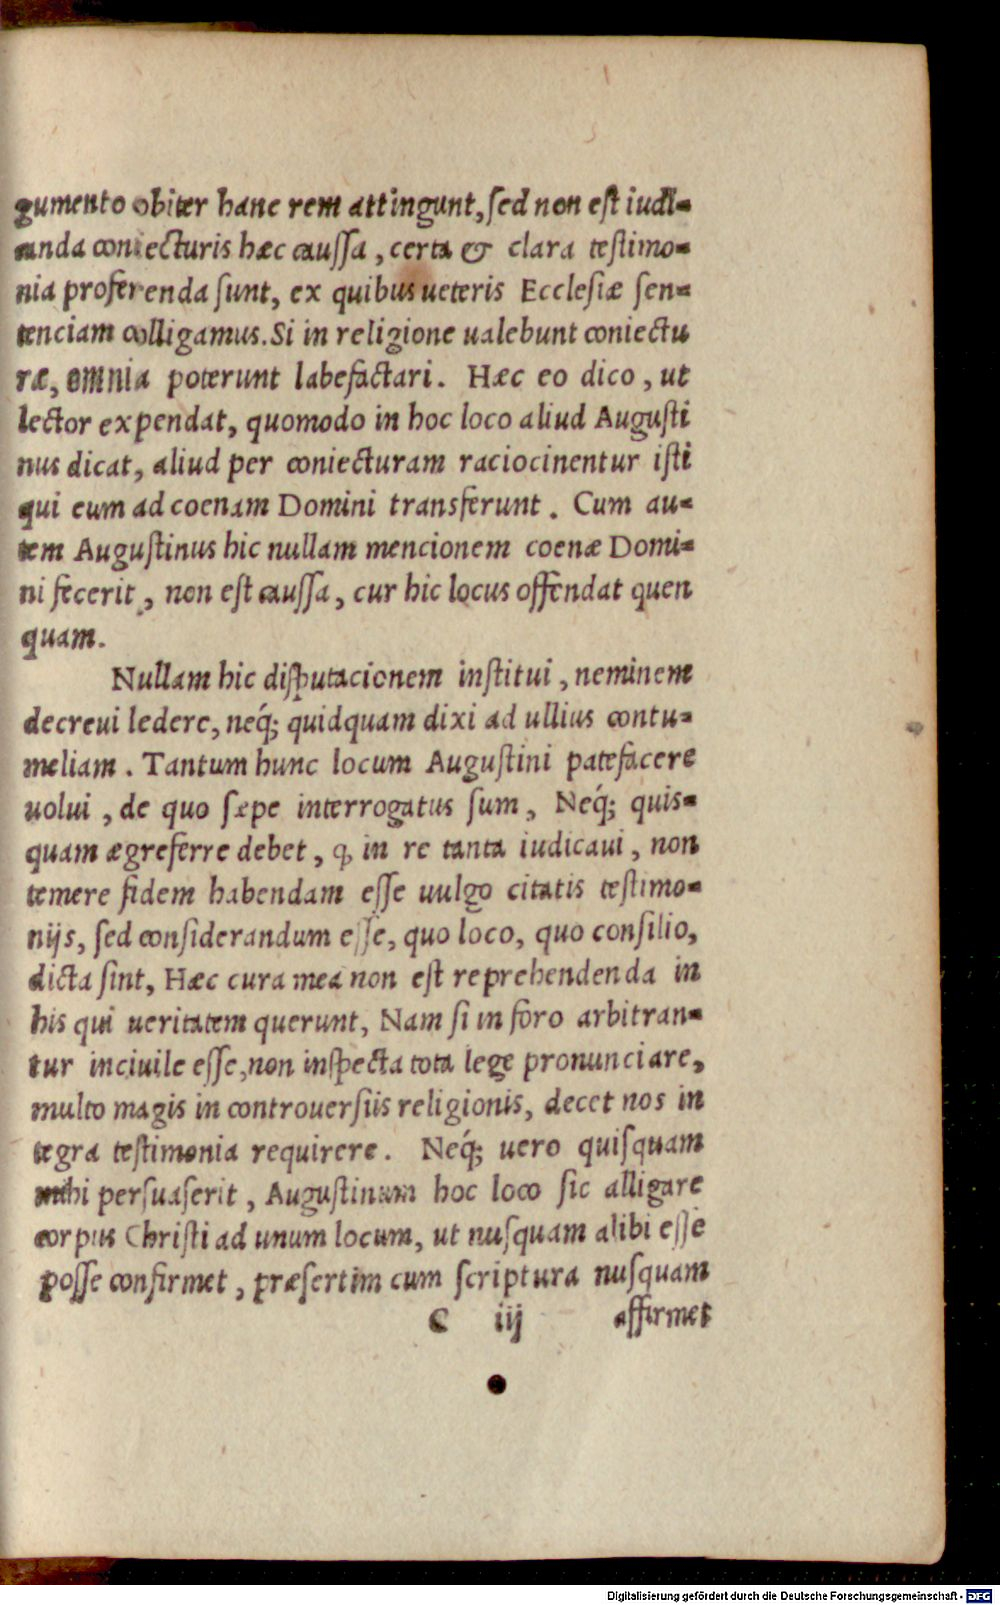 gumento obiter hanc rem attingunt, ſed non eſt iudi-
anda coniecturis hæc cauſſa, certa & clara teſtimo-
nia proferenda ſunt, ex quibus ueteris Eccleſiæ ſen-
tenciam colligamus. Si in religione ualebunt coniectu
ræ, omnia poterunt labefactari. Hæc eo dico, ut
lector expendat, quomodo in hoc loco aliud Auguſti
nus dicat, aliud per coniecturam raciocinentur iſti
qui eum ad coenam Domini transferunt. Cum au-
tem Auguſtinus hic nullam mencionem coenæ Domi-
ni fecerit, non eſt cauſſa, cur hic locus offendat quen
quam.
Nullam hic diſputacionem inſtitui, neminem
decreui ledere, neq́; quidquam dixi ad ullius contu-
meliam. Tantum hunc locum Auguſtini patefacere
uolui, de quo ſæpe interrogatus ſum, Neq́; quis-
quam ægreferre debet, ꝙ in re tanta iudicaui, non
temere fidem habendam eſſe uulgo citatis teſtimo-
nijs, ſed conſiderandum eſſe, quo loco, quo conſilio,
dicta ſint, Hæc cura mea non eſt reprehendenda in
his qui ueritatem querunt, Nam ſi in foro arbitran-
tur inciuile eſſe, non inſpecta tota lege pronunciare,
multo magis in controuerſiis religionis, decet nos in
tegra teſtimonia requirere. Neq́; uero quiſquam
mihi perſuaſerit, Auguſtinum hoc loco ſic alligare
corpus Chriſti ad unum locum, ut nuſquam alibi eſſe
poſſe confirmet, præſertim cum ſcriptura nuſquam
C iij affirmet
Digitalisierung gefördert durch die Deutsche Forschungsgemeinschaft - DFG